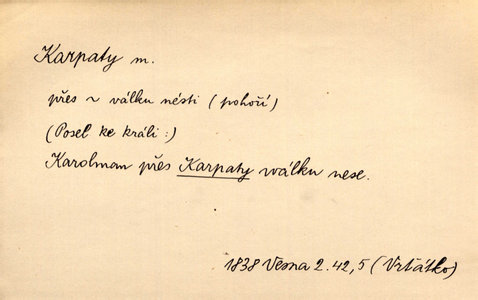 Karpaty m.
přes ~ válku nésti (pohoří)
(Posel ke králi:)
Karolman přes Karpaty wálku nese.
1838 Vesna 2. 42, 5 (Vrťátko)